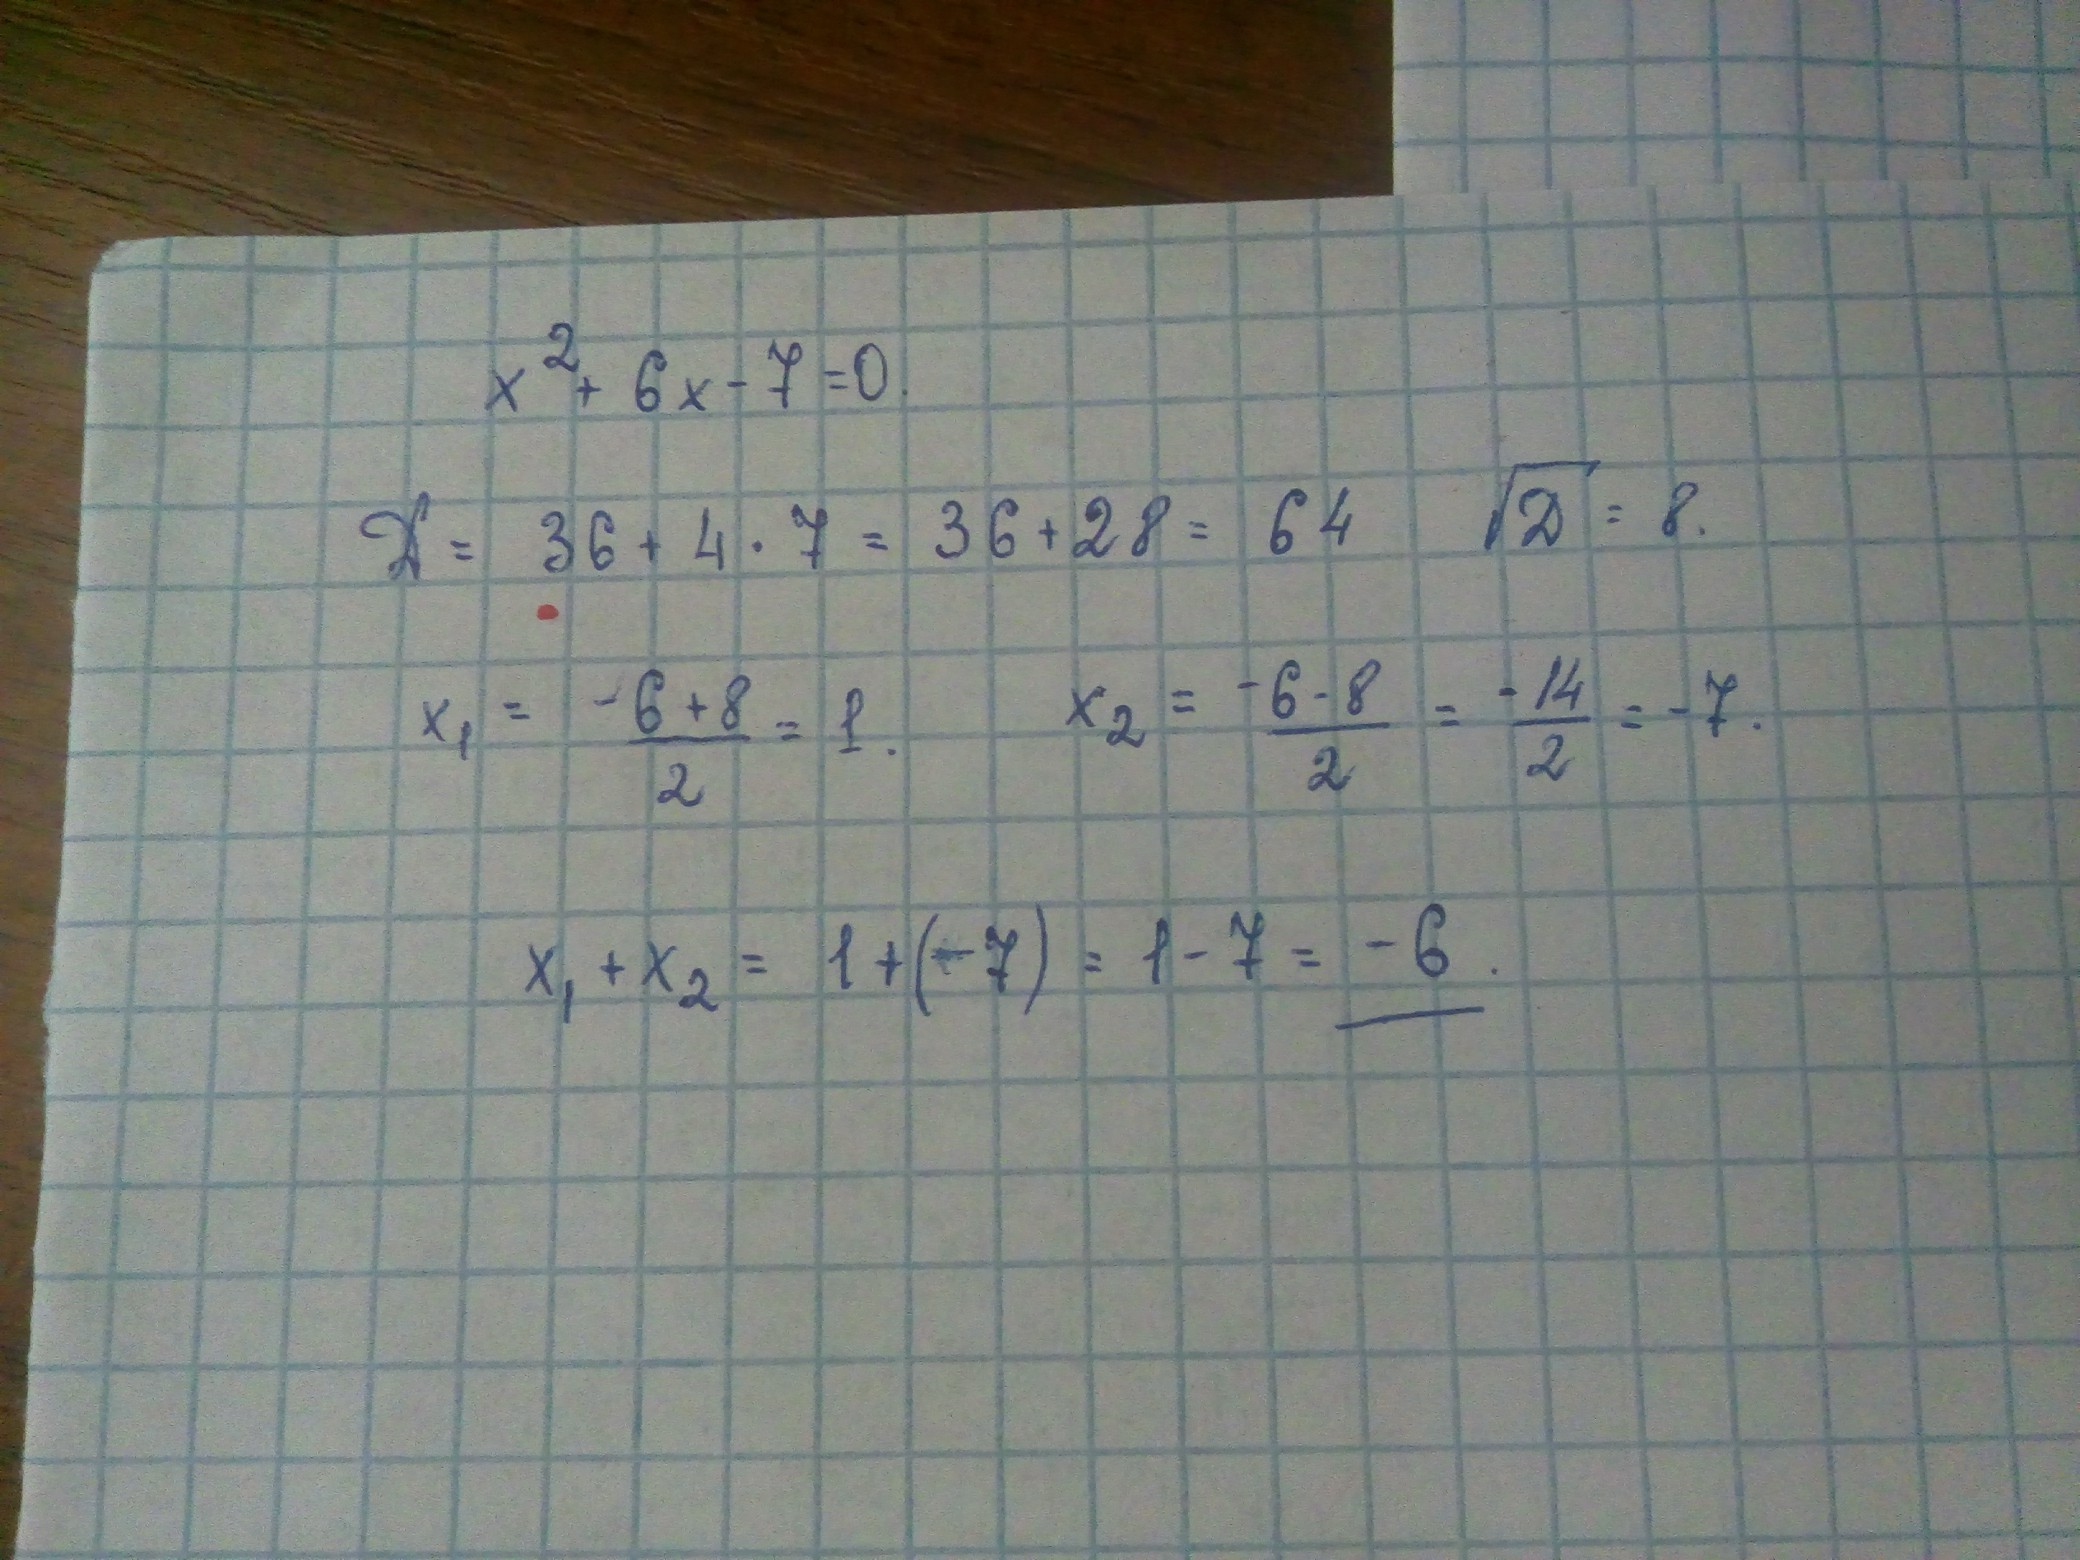 x² + 6x - 7 = 0.
D = 36 + 4 · 7 = 36 + 28 = 64 √D = 8.
x₁ = (-6+8)/2 = 1. x₂ = (-6-8)/2 = -14/2 = -7.
x₁ + x₂ = 1 + (-7) = 1 - 7 = -6.